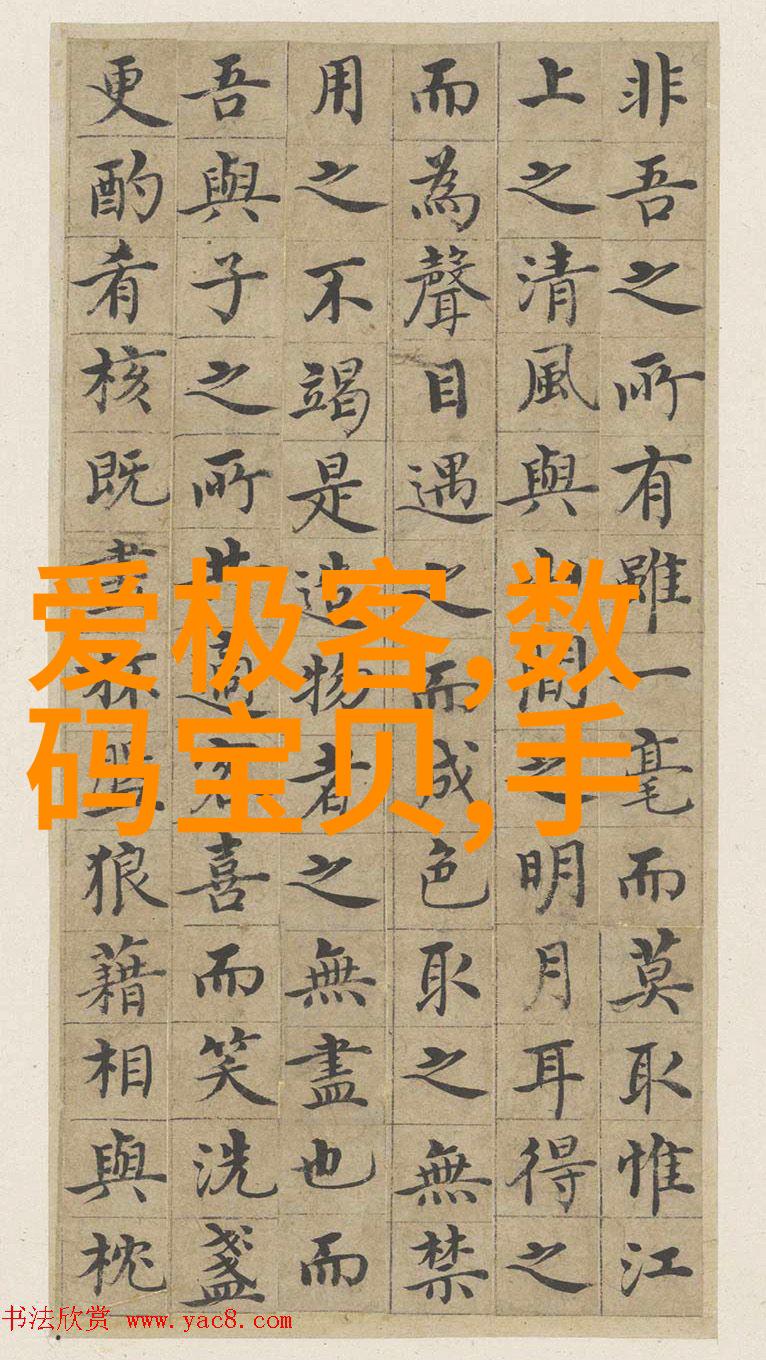 非吾之所有雖一毫而莫取惟江
上之清風與間之明月耳得之
而為聲目遇之而成色取之無禁
用之不竭是造物者之無盡也而
吾與子之所共適客喜而笑洗盞
更酌肴核既盡杯盤狼藉相與枕
爱极客,数
码宝贝,手
书法欣赏 www.yac8.com